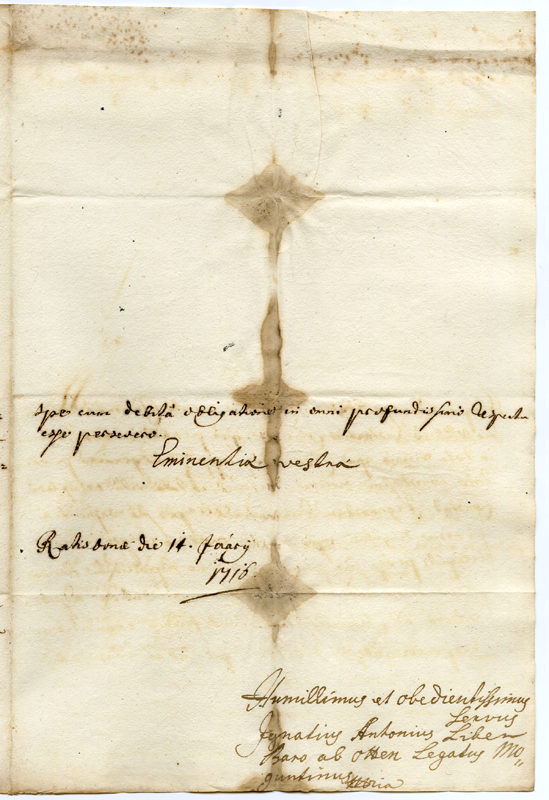 spe cum debitâ obligatione in omni profundissimo respectu
ego persevero.
Eminentiæ vestræ
Ratisbonæ die 14. Jänuarij
1716.
Humillimus et obedientissimus
servus
Ignatius Antonius Liber
Baro ab Otten Legatus Mo„
guntinus